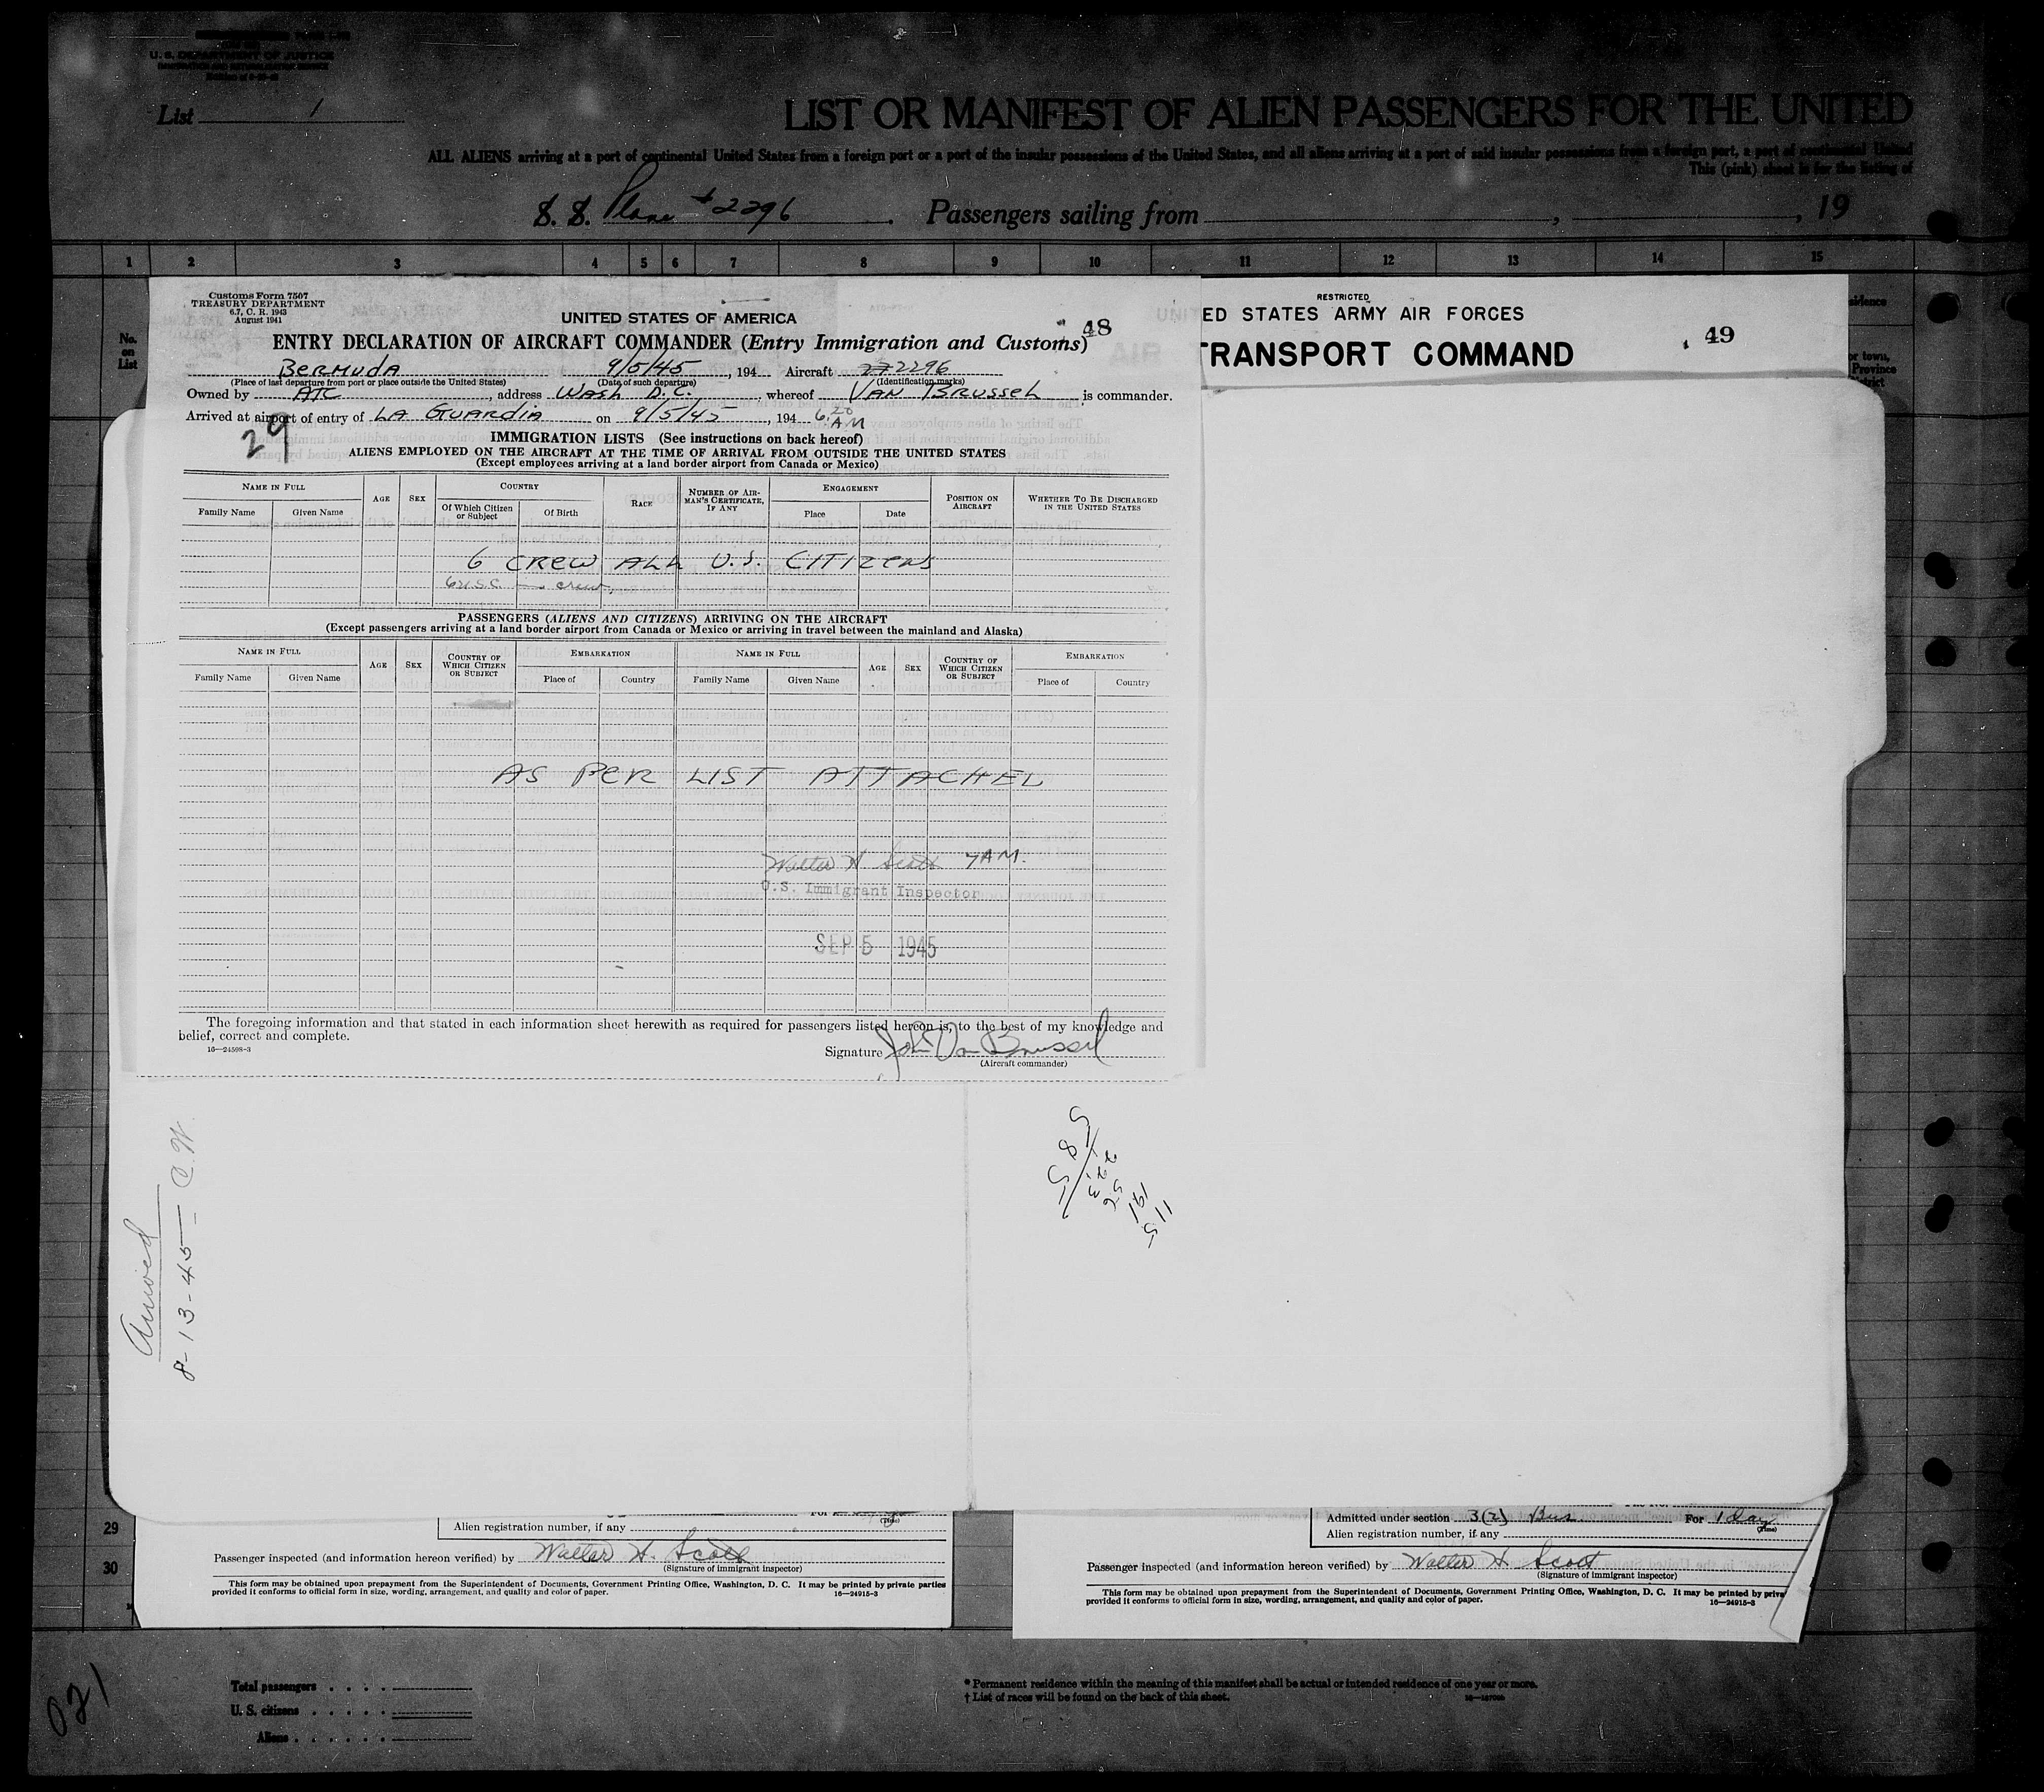 U. S. DEPARTMENT OF JUSTICE
List 1
LIST OR MANIFEST OF ALIEN PASSENGERS FOR THE UNITED
ALL ALIENS arriving at a port of continental United States from a foreign port or a port of the insular possessions of the United States, and all aliens arriving at a port of said insular possessions from a foreign port, a port of continental United
This (pink) sheet is for the listing of
S. S. Plane #2296 . Passengers sailing from , , 19
1 2 3 4 5 6 7 8 9 10 11 12 13 14 15
No. on List
Customs Form 7507
TREASURY DEPARTMENT
6.7, C. R. 1943
August 1941
UNITED STATES OF AMERICA
48
ENTRY DECLARATION OF AIRCRAFT COMMANDER (Entry Immigration and Customs)
BERMUDA 9/5/45, 194 Aircraft 2296
(Place of last departure from port or place outside the United States) (Date of such departure) (Identification marks)
Owned by ATC, address WASH D.C., whereof VAN BRUSSEL is commander.
Arrived at airport of entry of LA GUARDIA on 9/5/45, 194 6:20 AM
29
IMMIGRATION LISTS (See instructions on back hereof)
ALIENS EMPLOYED ON THE AIRCRAFT AT THE TIME OF ARRIVAL FROM OUTSIDE THE UNITED STATES
(Except employees arriving at a land border airport from Canada or Mexico)
NAME IN FULL AGE SEX COUNTRY RACE NUMBER OF AIRMAN'S CERTIFICATE, IF ANY ENGAGEMENT POSITION ON AIRCRAFT WHETHER TO BE DISCHARGED IN THE UNITED STATES
Family Name Given Name Of Which Citizen or Subject Of Birth Place Date
6 CREW ALL U.S. CITIZENS
6 U.S.C. — crew
PASSENGERS (ALIENS AND CITIZENS) ARRIVING ON THE AIRCRAFT
(Except passengers arriving at a land border airport from Canada or Mexico or arriving in travel between the mainland and Alaska)
NAME IN FULL AGE SEX COUNTRY OF WHICH CITIZEN OR SUBJECT EMBARKATION NAME IN FULL AGE SEX COUNTRY OF WHICH CITIZEN OR SUBJECT EMBARKATION
Family Name Given Name Place of Country Family Name Given Name Place of Country
AS PER LIST ATTACHED
Walter H Scott 7 AM.
U.S. Immigrant Inspector
SEP 5 1945
The foregoing information and that stated in each information sheet herewith as required for passengers listed hereon is, to the best of my knowledge and
belief, correct and complete.
16—24598-3
Signature John Van Brussel
(Aircraft commander)
RESTRICTED
ED STATES ARMY AIR FORCES
TRANSPORT COMMAND
49
Arrived
8-13-45 — C.W.
29
30
Alien registration number, if any
(Time)
Passenger inspected (and information hereon verified) by Walter H. Scott
(Signature of immigrant inspector)
This form may be obtained upon prepayment from the Superintendent of Documents, Government Printing Office, Washington, D. C. It may be printed by private parties
provided it conforms to official form in size, wording, arrangement, and quality and color of paper.
16—24915-3
Admitted under section 3(2) Bus For 1 day
(Time)
Alien registration number, if any
Passenger inspected (and information hereon verified) by Walter H Scott
(Signature of immigrant inspector)
This form may be obtained upon prepayment from the Superintendent of Documents, Government Printing Office, Washington, D. C. It may be printed by priva
provided it conforms to official form in size, wording, arrangement, and quality and color of paper.
16—24915-3
021
Total passengers
U. S. citizens
Aliens
* Permanent residence within the meaning of this manifest shall be actual or intended residence of one year or more.
† List of races will be found on the back of this sheet.